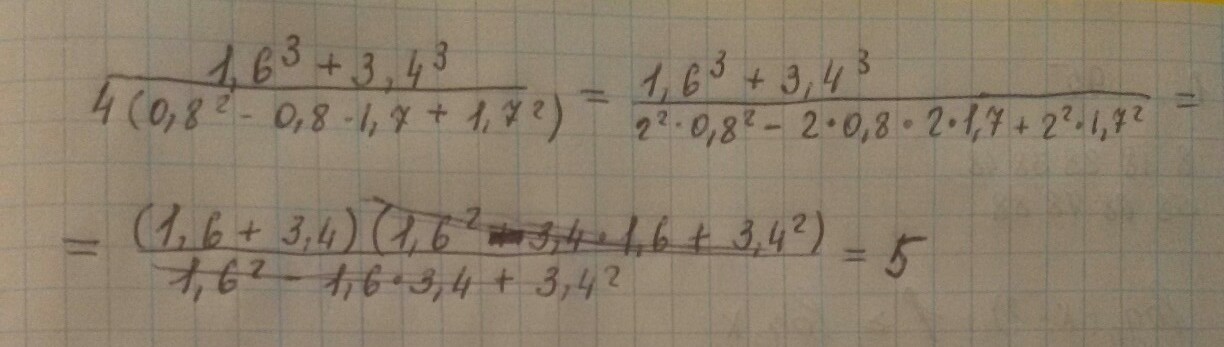 (1,6³ + 3,4³) / (4(0,8² - 0,8 · 1,7 + 1,7²)) = (1,6³ + 3,4³) / (2² · 0,8² - 2 · 0,8 · 2 · 1,7 + 2² · 1,7²) =
= ((1,6 + 3,4)(1,6² - 3,4 · 1,6 + 3,4²)) / (1,6² - 1,6 · 3,4 + 3,4²) = 5